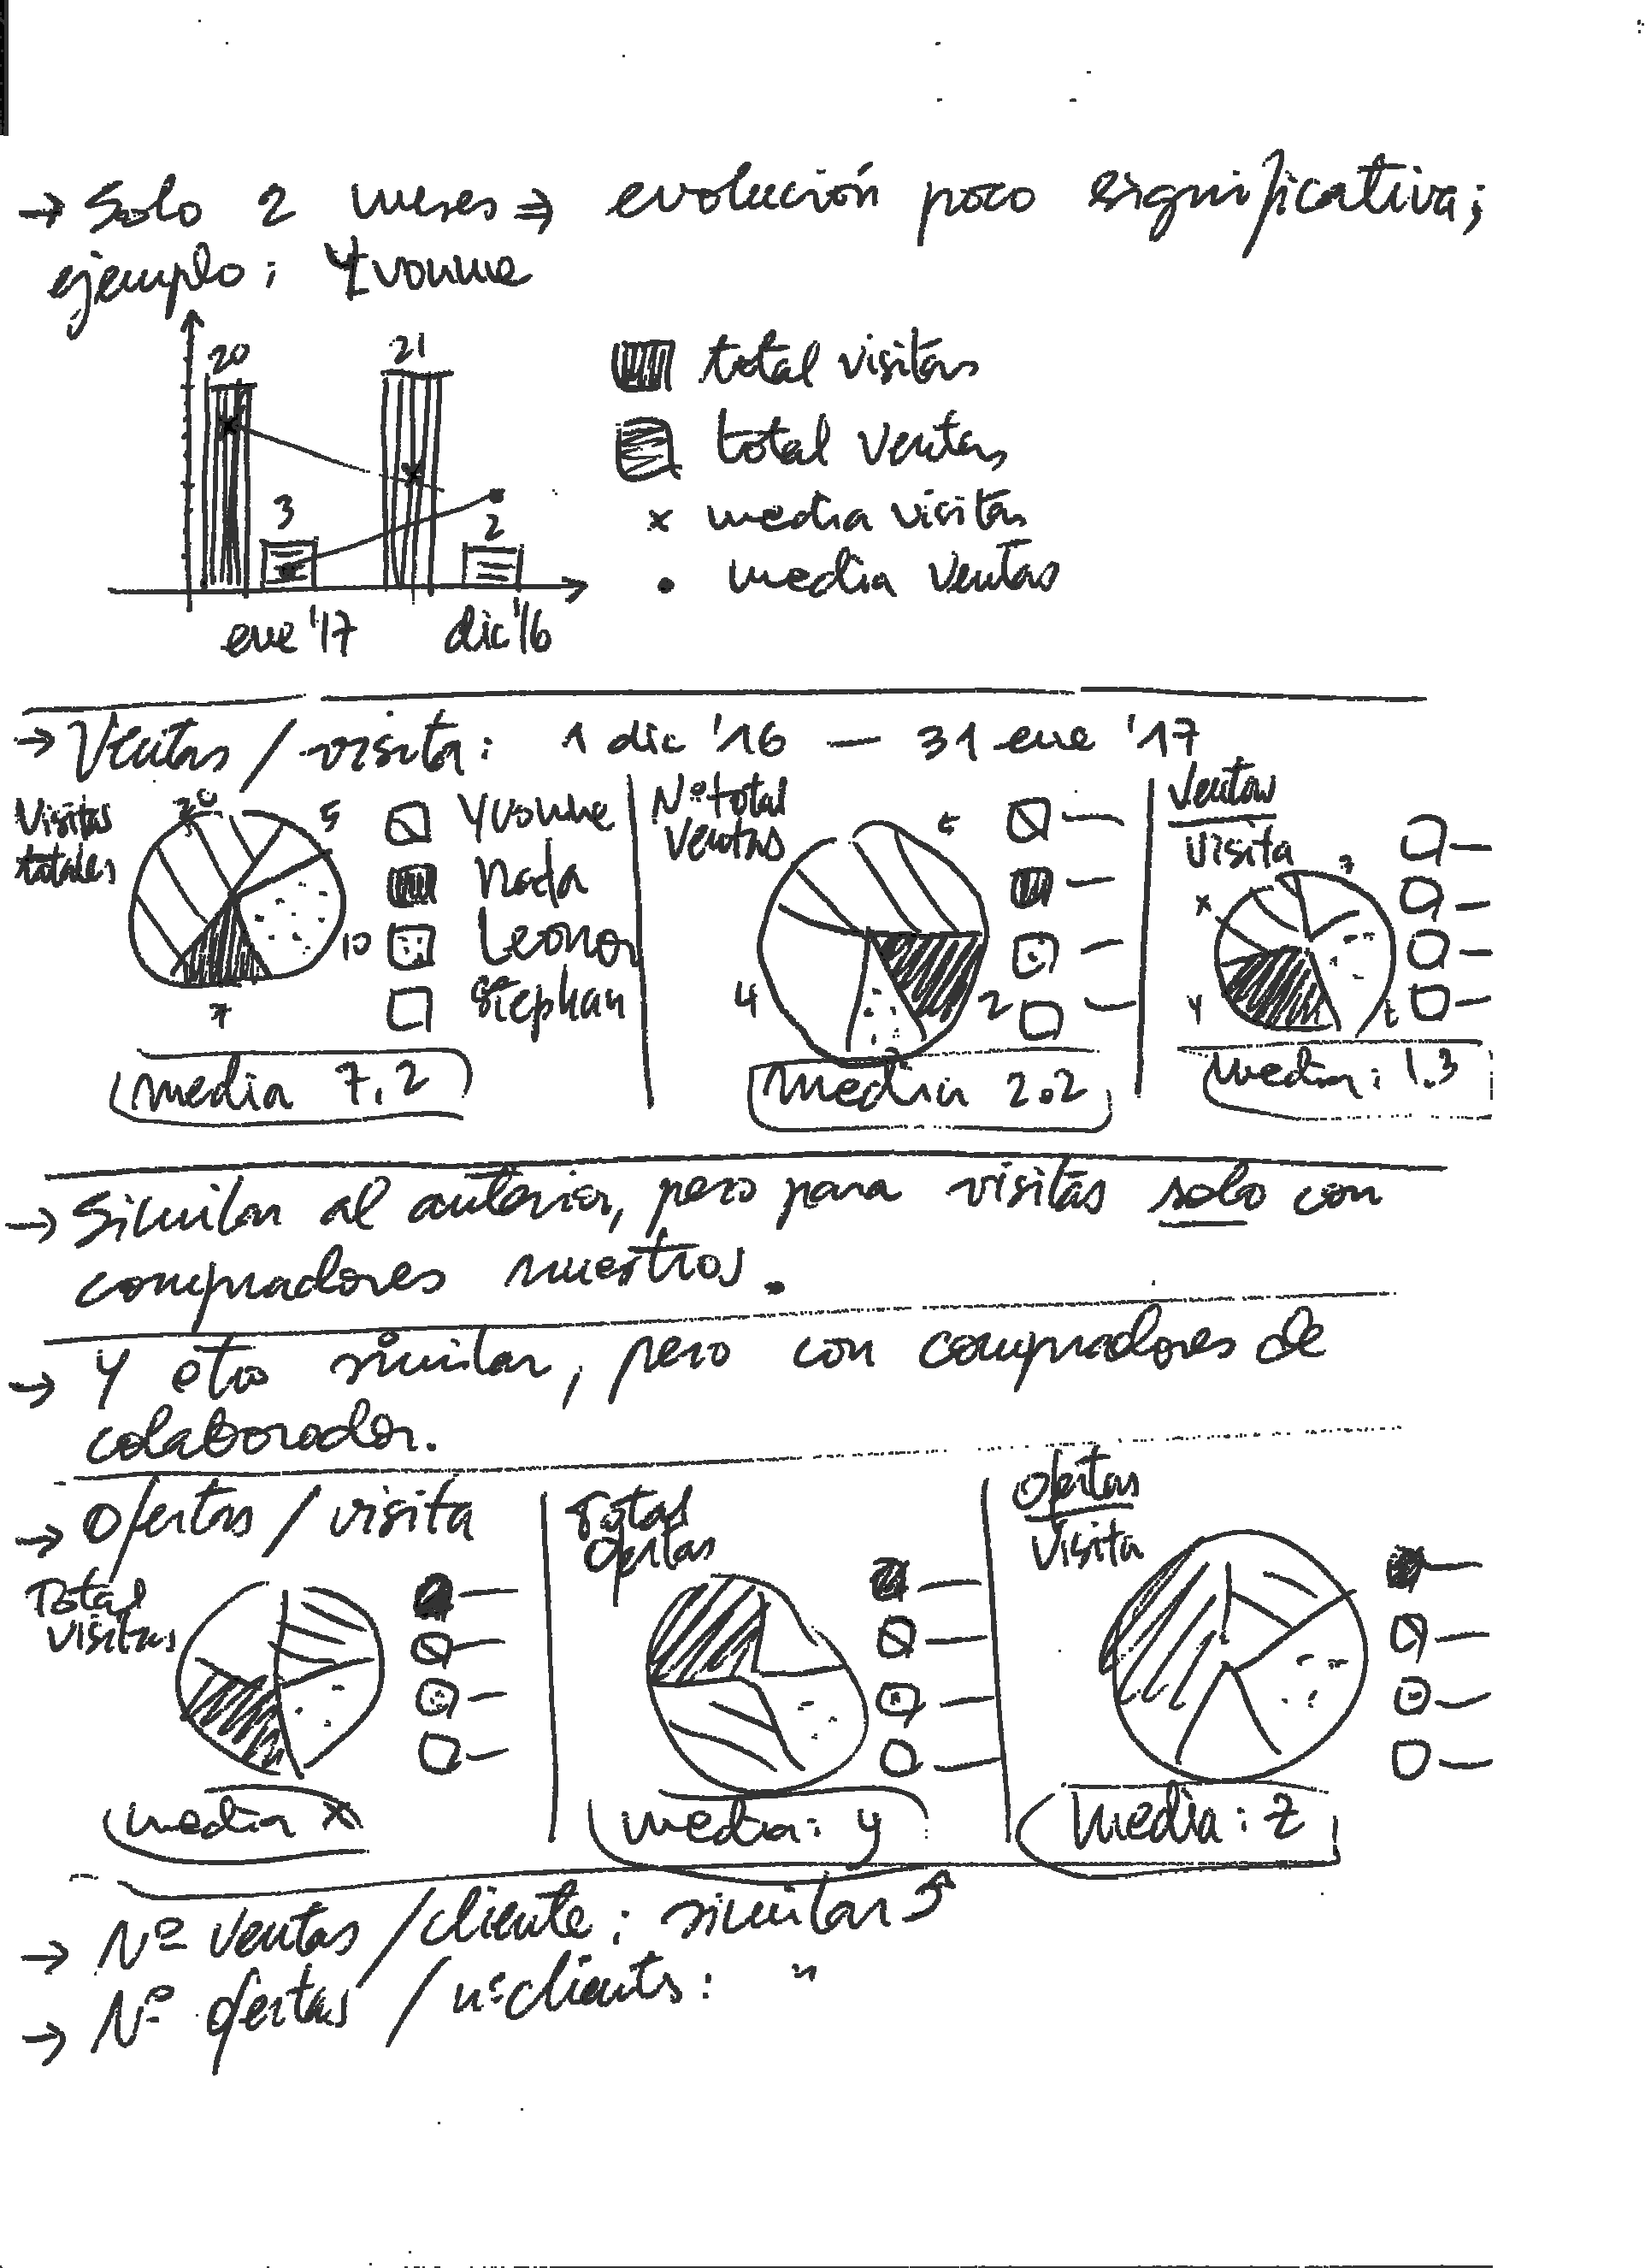 → Solo 2 meses ⇒ evolución poco significativa;
ejemplo: Yvonne
20
21
3
2
ene '17
dic '16
total visitas
total ventas
x media visitas
• media ventas
→ Ventas / visita: 1 dic '16 — 31 ene '17
Visitas
totales
20
5
10
7
Yvonne
Nada
Leonor
Stephan
media 7,2
Nº total
ventas
4
2
media 2.2
Ventas
Visita
x
7
y
t
media: 1.3
→ Similar al anterior, pero para visitas solo con
compradores nuestros.
→ Y otro similar, pero con compradores de
colaborador.
→ Ofertas / visita
Total
visitas
media x
Total
Ofertas
media: y
Ofertas
Visita
media: z
→ Nº ventas / cliente: similar
→ Nº ofertas / nº clients: "